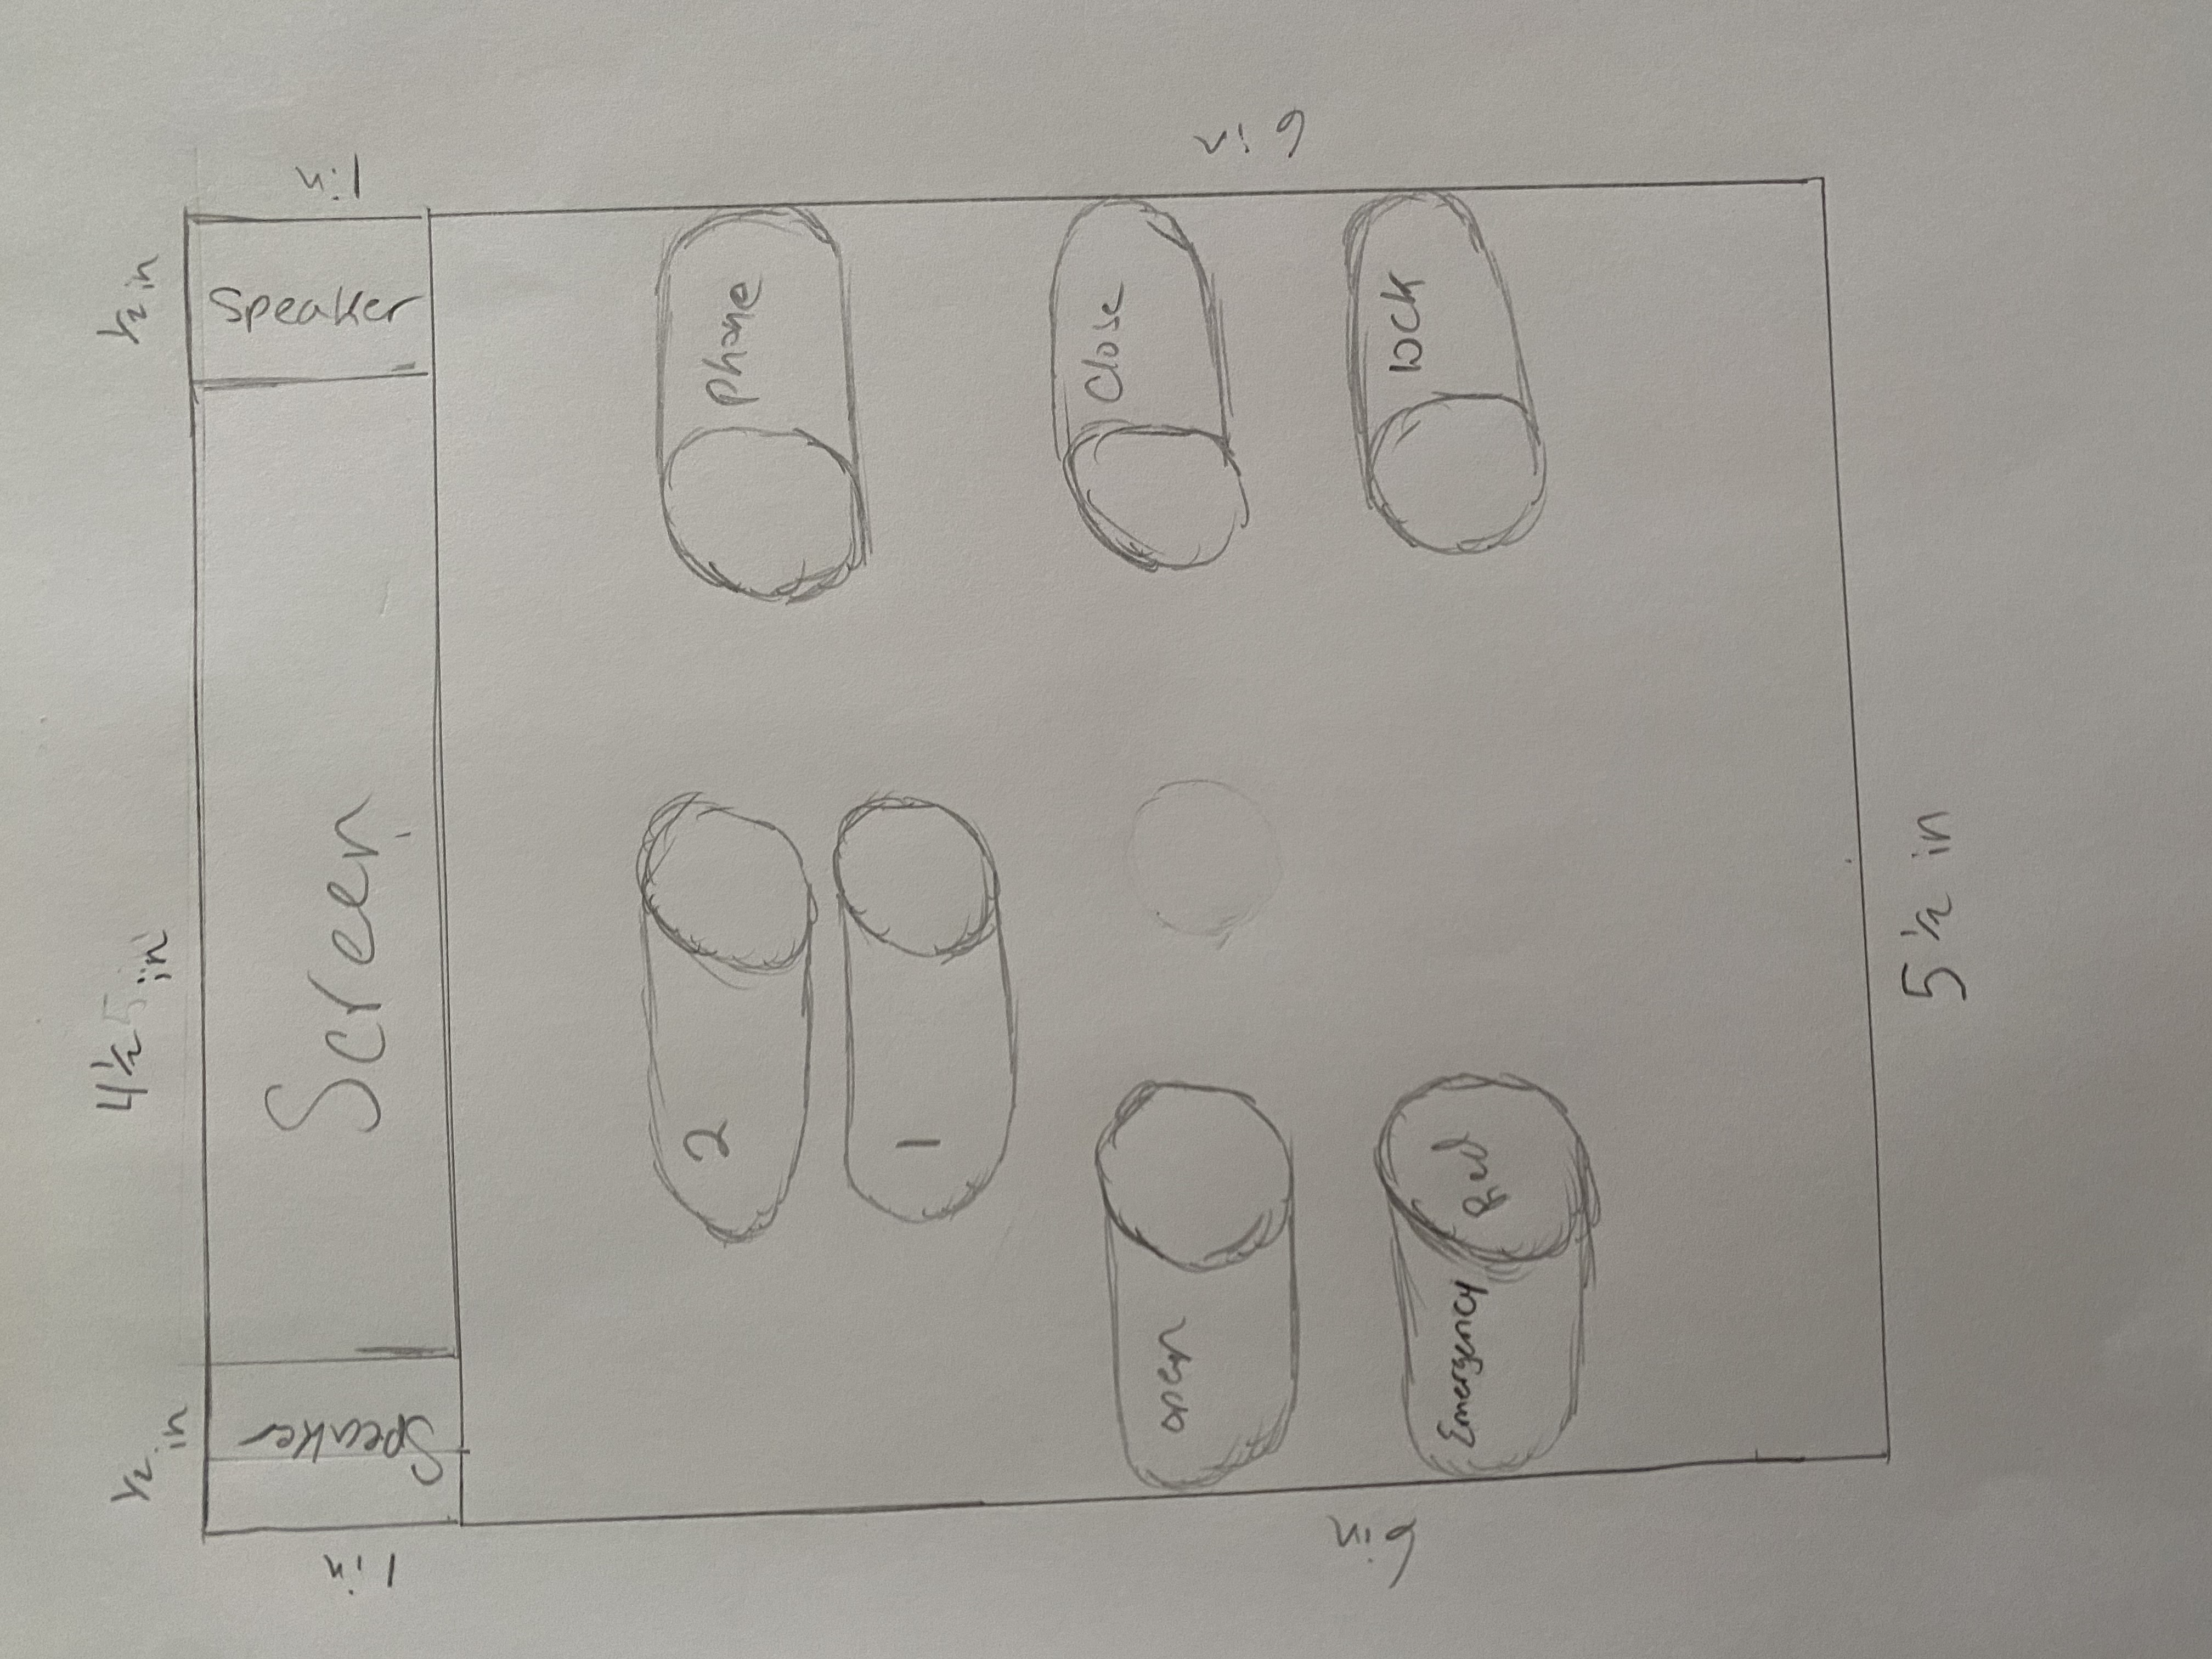 1/2 in
4 1/2 in
1/2 in
1 in
Speaker
Screen
Speaker
1 in
2
Phone
1
open
Close
6 in
6 in
Emergency
Red
lock
5 1/2 in